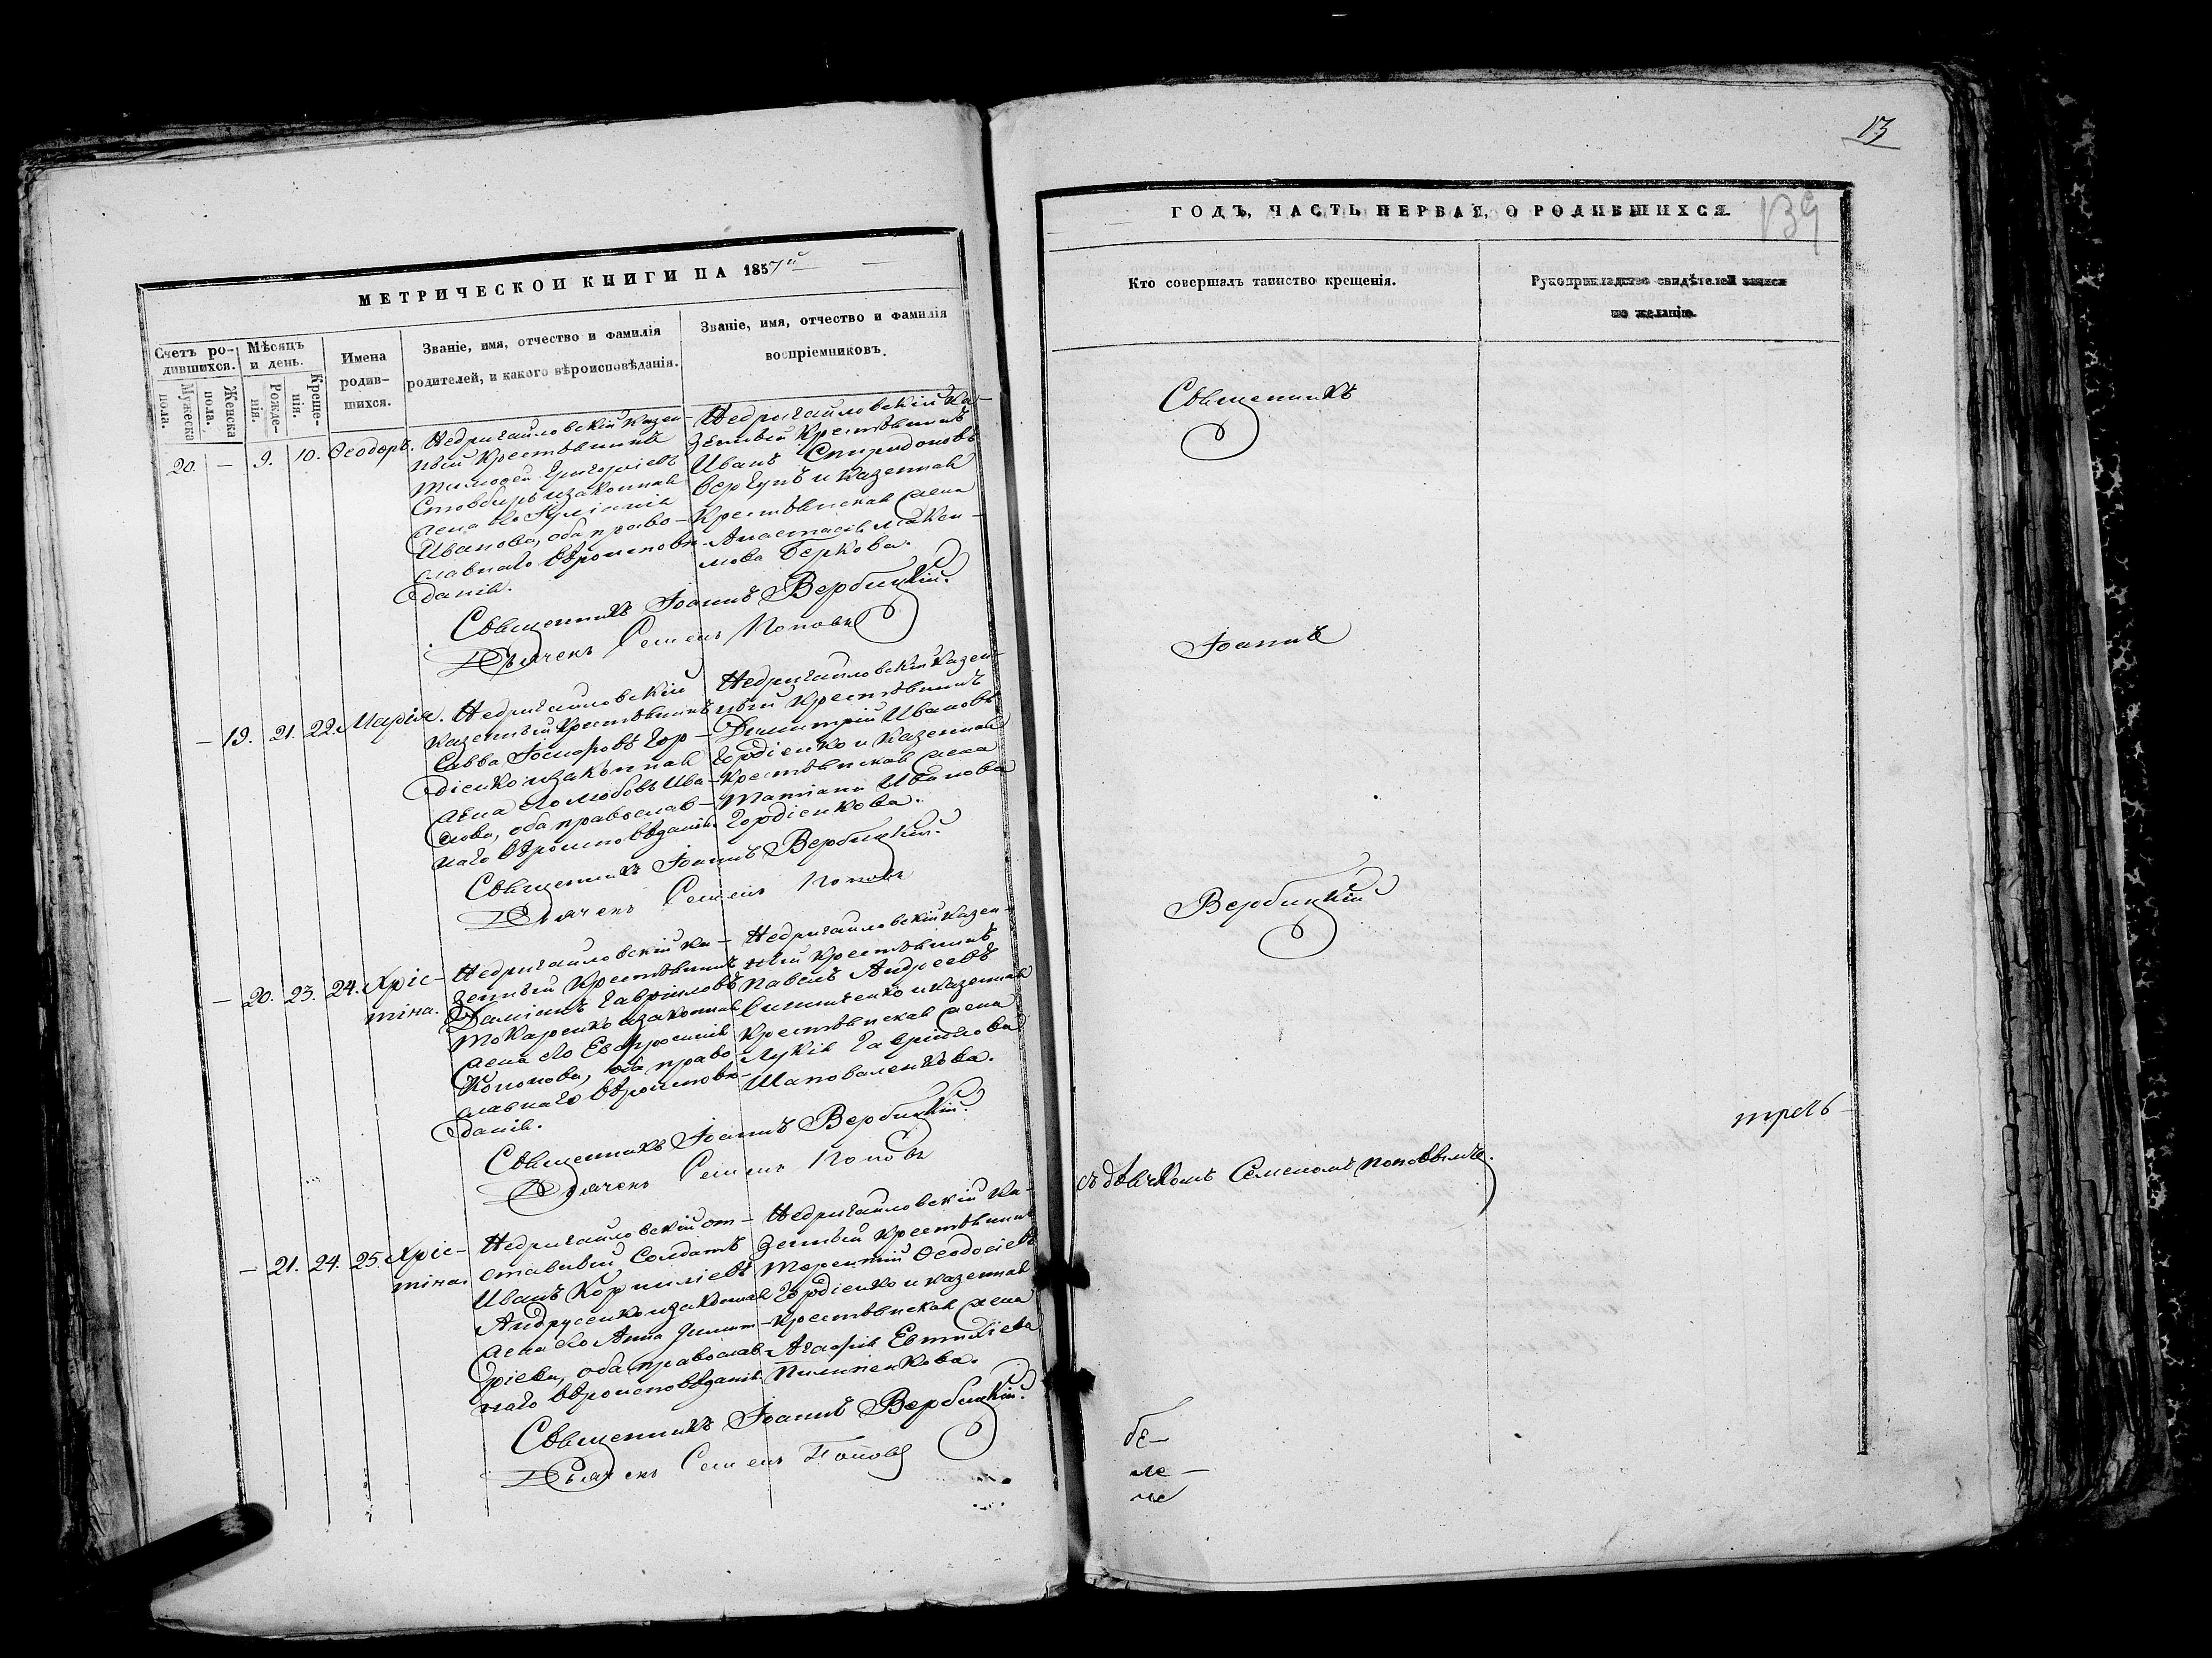 МЕТРИЧЕСКОЙ КНИГИ НА 1857й
Счетъ ро-
дившихся.
Мужеска
пола.
Женска
пола.
Мѣсяцъ
и день.
Рожде-
нія.
Креще-
нія.
Имена
родив-
шихся.
Званіе, имя, отчество и фамилія
родителей, и какого вѣроисповѣданія.
Званіе, имя, отчество и фамилія
воспріемниковъ.
20. — 9. 10. Ѳеодоръ.
Недригайловскій казен-
ный Крестьянинъ
Тимоѳей Григоріевъ
Стовбиръ изаконная
жена его Іуліанія
Иванова, оба право-
славнаго вѣроисповѣ-
данія.
Недригайловскій Ка-
зенный Крестьянинъ
Иванъ Спиридоновъ
Вергунъ и Казенная
Крестьянская жена
Анастасія
мова Беркова.
Священникъ Іоаннъ Вербицкій.
Дьячекъ Семенъ Поповъ
— 19. 21. 22. Марія.
Недригайловскій
Казенный Крестьянинъ
Савва Іосифовъ Гор-
діенко изаконная
жена его Любовь Ива-
нова, оба православ-
наго вѣроисповѣданія.
Недригайловскій Казен-
ный Крестьянинъ
Димитрій Ивановъ
Гордіенко и Казенная
Крестьянская жена
Татіана Иванова
Гордіенкова.
Священникъ Іоаннъ Вербицкій.
Дьячекъ Семенъ Поповъ
— 20. 23. 24. Хріс-
тіна.
Недригайловскій Ка-
зенный Крестьянинъ
Даміанъ Гавріиловъ
Токаренко изаконная
жена его Евфросинія
Кононова, оба право-
славнаго вѣроисповѣ-
данія.
Недригайловскій Казен-
ный Крестьянинъ
Павелъ Андреевъ
и Казенная
Крестьянская жена
Лукія Гавріилова
Шаповаленкова.
Священникъ Іоаннъ Вербицкій.
Дьячекъ Семенъ Поповъ
— 21. 24. 25. Хріс-
тіна.
Недригайловскій от-
ставный Солдатъ
Иванъ Корниліевъ
Андрусенко изаконная
жена его Анна Димит-
ріева, оба православ-
наго вѣроисповѣданія.
Недригайловскій Ка-
зенный Крестьянинъ
Терентій Ѳеодосіевъ
Гордіенко и казенная
Крестьянская жена
Агафія Евтихіева
Пилипенкова.
Священникъ Іоаннъ Вербицкій.
Дьячекъ Семенъ Поповъ
13
139
ГОДЪ, ЧАСТЬ ПЕРВАЯ, О РОДИВШИХСЯ.
Кто совершалъ таинство крещенія.
Рукоприкладство свидѣтелей записи
по желанію.
Священникъ
Іоаннъ
Вербицкій
трехъ
съ дьячкомъ Семеномъ Поповымъ.